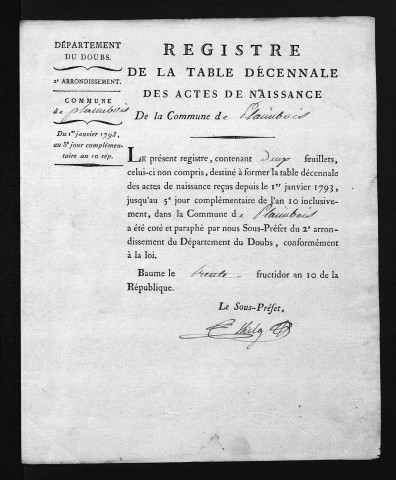 DÉPARTEMENT
DU DOUBS.
2e ARRONDISSEMENT.
COMMUNE
de Plaimbois
Du 1er janvier 1793,
au 5e jour complémen-
taire an 10 rép.
REGISTRE
DE LA TABLE DÉCENNALE
DES ACTES DE NAISSANCE
De la Commune de Plaimbois
LE présent registre, contenant Deux feuillets,
celui-ci non compris, destiné à former la table décennale
des actes de naissance reçus depuis le 1er janvier 1793,
jusqu'au 5e jour complémentaire de l'an 10 inclusive-
ment, dans la Commune de Plaimbois
a été coté et paraphé par nous Sous-Préfet du 2e arron-
dissement du Département du Doubs, conformément
à la loi.
Baume le trente fructidor an 10 de la
République.
Le Sous-Préfet,